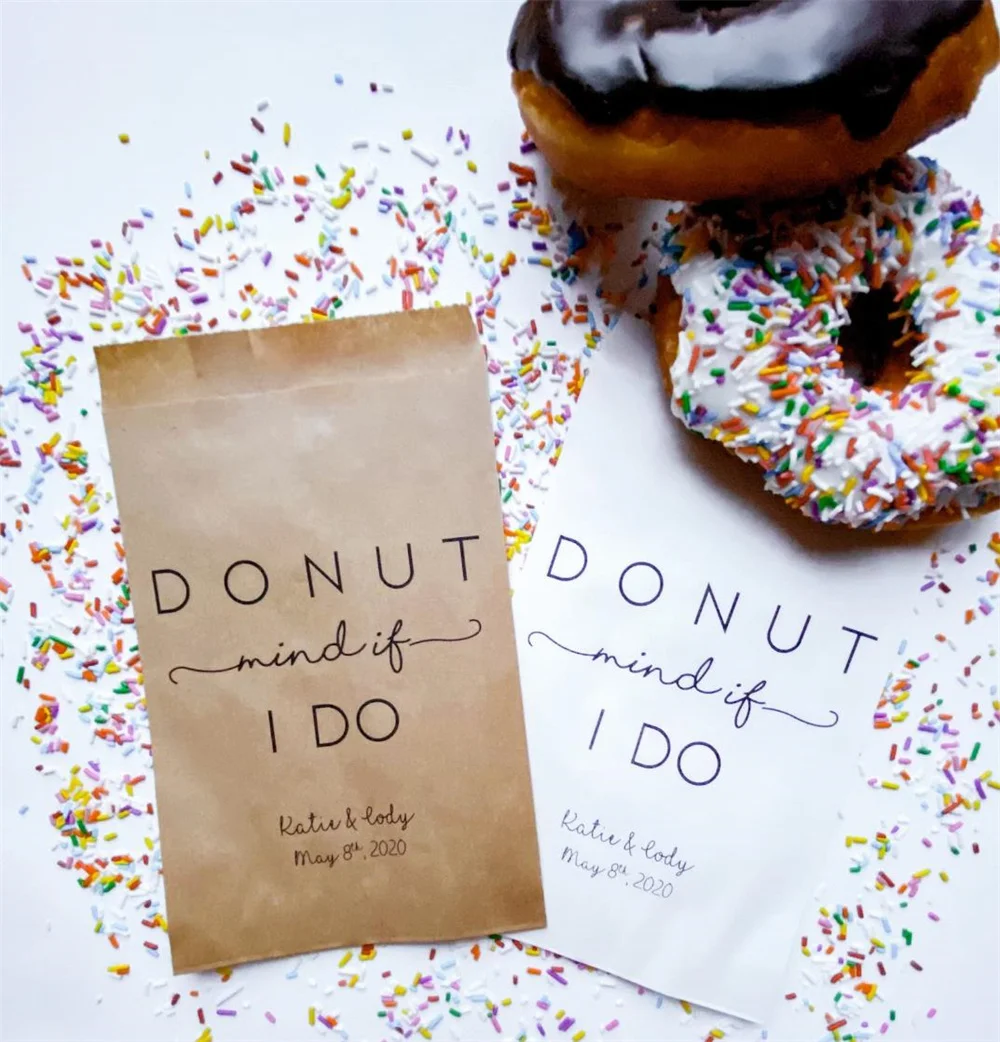 DONUT
mind if
I DO
Katie & Cody
May 8th, 2020
DONUT
mind if
I DO
Katie & Cody
May 8th, 2020